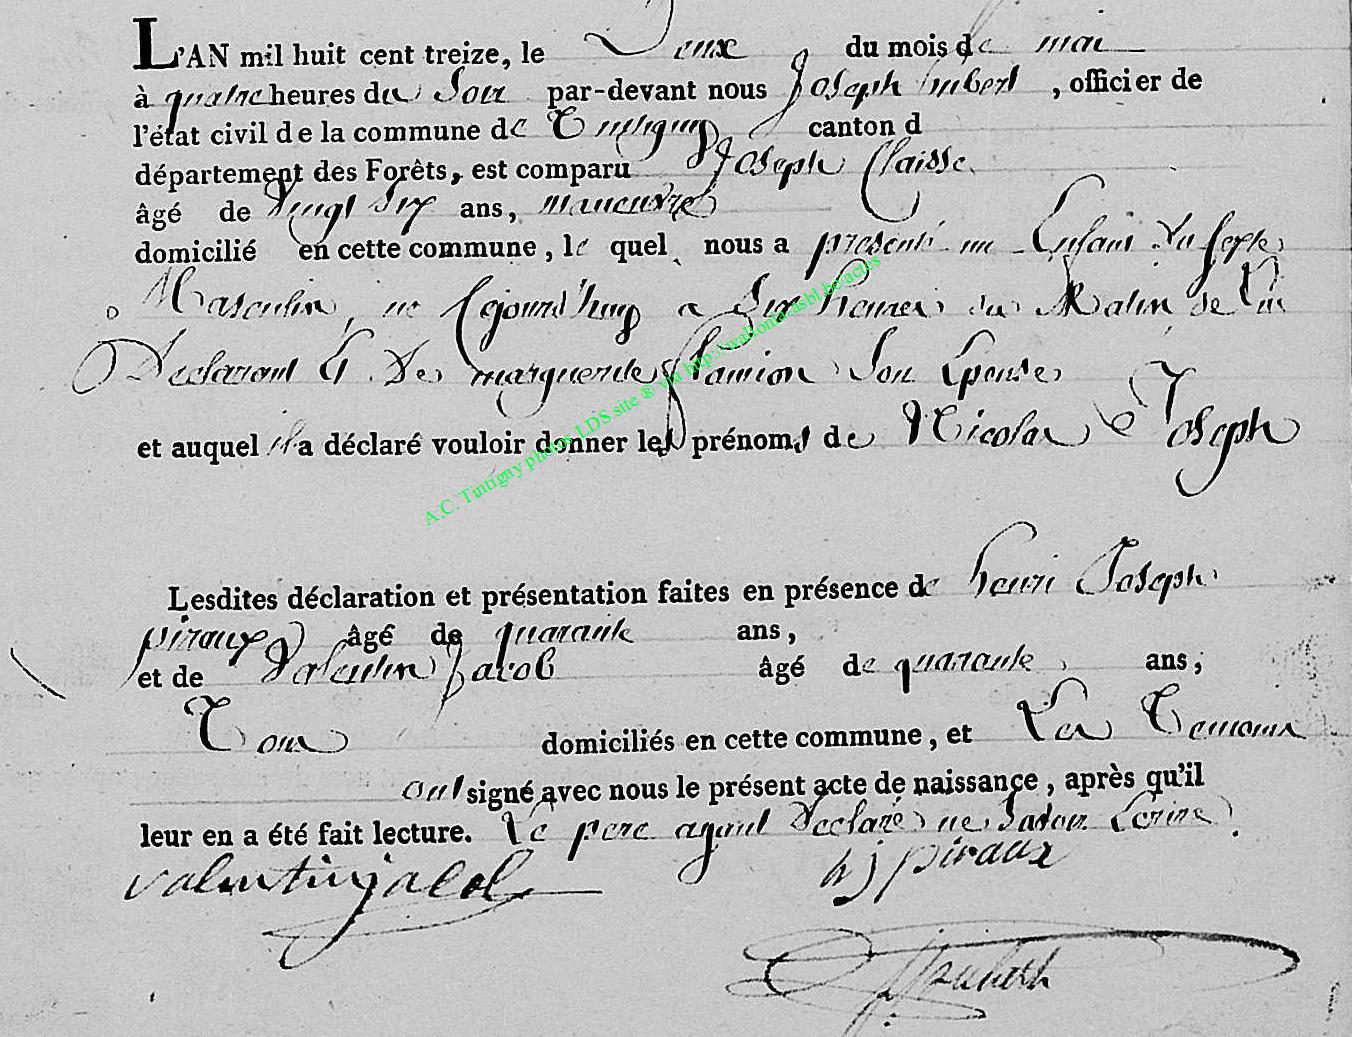 L'AN mil huit cent treize, le Deux du mois de mai
à quatre heures du Soir par-devant nous Joseph imbert, officier de
l'état civil de la commune de Tintigny canton d
département des Forêts, est comparu Joseph Claisse
âgé de vingt six ans, maneuvre
domicilié en cette commune, le quel nous a présenté un Enfant du sexe
Masculin, né ajourd'huy a Six heures du Matin de lui
Declarant Et De marguerite Son Epouse
et auquel il a déclaré vouloir donner les prénoms de Nicolas Joseph
Lesdites déclaration et présentation faites en présence de henri Joseph
piraux âgé de quarante ans,
et de Valentin Jacob âgé de quarante ans,
Tous domiciliés en cette commune, et Les Temoins
ont signé avec nous le présent acte de naissance, après qu'il
leur en a été fait lecture. Le pere ayant Declaré ne Savoir Ecrire.
valentin jacob hj piraux
A.C. Tintigny photos LDS site ® via http://wallonia-asbl.be/actes